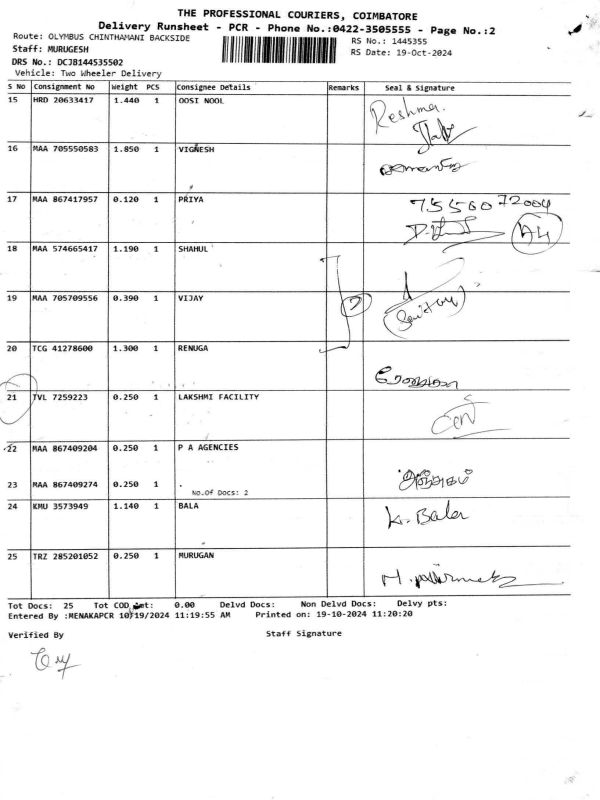 THE PROFESSIONAL COURIERS, COIMBATORE
Delivery Runsheet - PCR - Phone No.:0422-3505555 - Page No.:2
Route: OLYMBUS CHINTHAMANI BACKSIDE RS No.: 1445355
Staff: MURUGESH RS Date: 19-Oct-2024
DRS No.: DCJB144535502
Vehicle: Two Wheeler Delivery
S No Consignment No Weight PCS Consignee Details Remarks Seal & Signature
15 HRD 20633417 1.440 1 OOSI NOOL
Reshma.
16 MAA 705550583 1.850 1 VIGNESH
17 MAA 867417957 0.120 1 PRIYA
7556072004
A4
18 MAA 574665417 1.190 1 SHAHUL
19 MAA 705709556 0.390 1 VIJAY
2
20 TCG 41278600 1.300 1 RENUGA
21 TVL 7259223 0.250 1 LAKSHMI FACILITY
22 MAA 867409204 0.250 1 P A AGENCIES
23 MAA 867409274 0.250 1 .
No.Of Docs: 2
24 KMU 3573949 1.140 1 BALA
K. Bala
25 TRZ 285201052 0.250 1 MURUGAN
Tot Docs: 25 Tot COD Amt: 0.00 Delvd Docs: Non Delvd Docs: Delvy pts:
Entered By :MENAKAPCR 10/19/2024 11:19:55 AM Printed on: 19-10-2024 11:20:20
Verified By Staff Signature